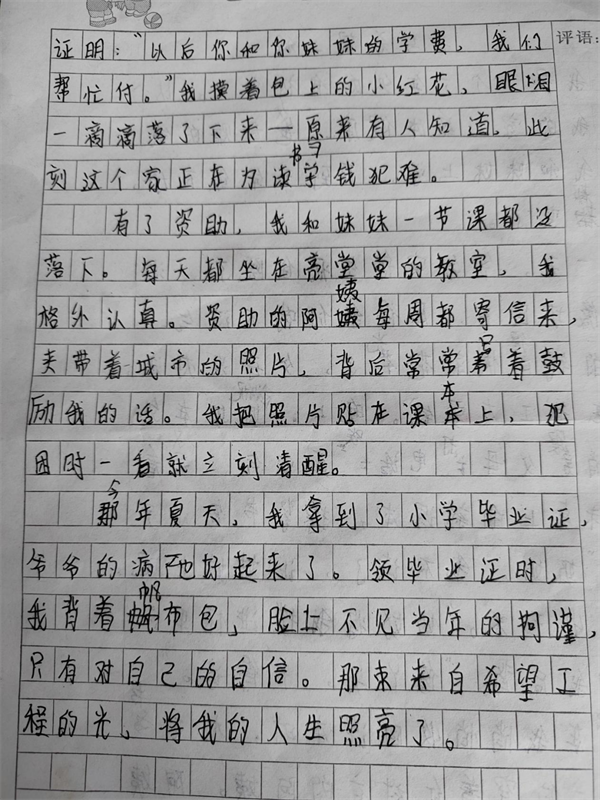 评语:
证明：“以后你和你妹妹的学费，我们
帮忙付。”我摸着包上的小红花，眼泪
一滴滴落了下来一原来有人知道，此
刻这个家正在为读书学钱犯难。
有了资助，我和妹妹一节课都没
落下。每天都坐在亮堂堂的教室，我
格外认真。资助的阿姨每周都寄信来，
夹带着城市的照片，背后常常写着鼓
励我的话。我把照片贴在课本上，犯
困时一看就立刻清醒。
今年夏天，我拿到了小学毕业证，
爷爷的病也好起来了。领毕业证时，
我背着帆布包，脸上不见当年的拘谨，
只有对自己的自信。那束来自希望工
程的光，将我的人生照亮了。